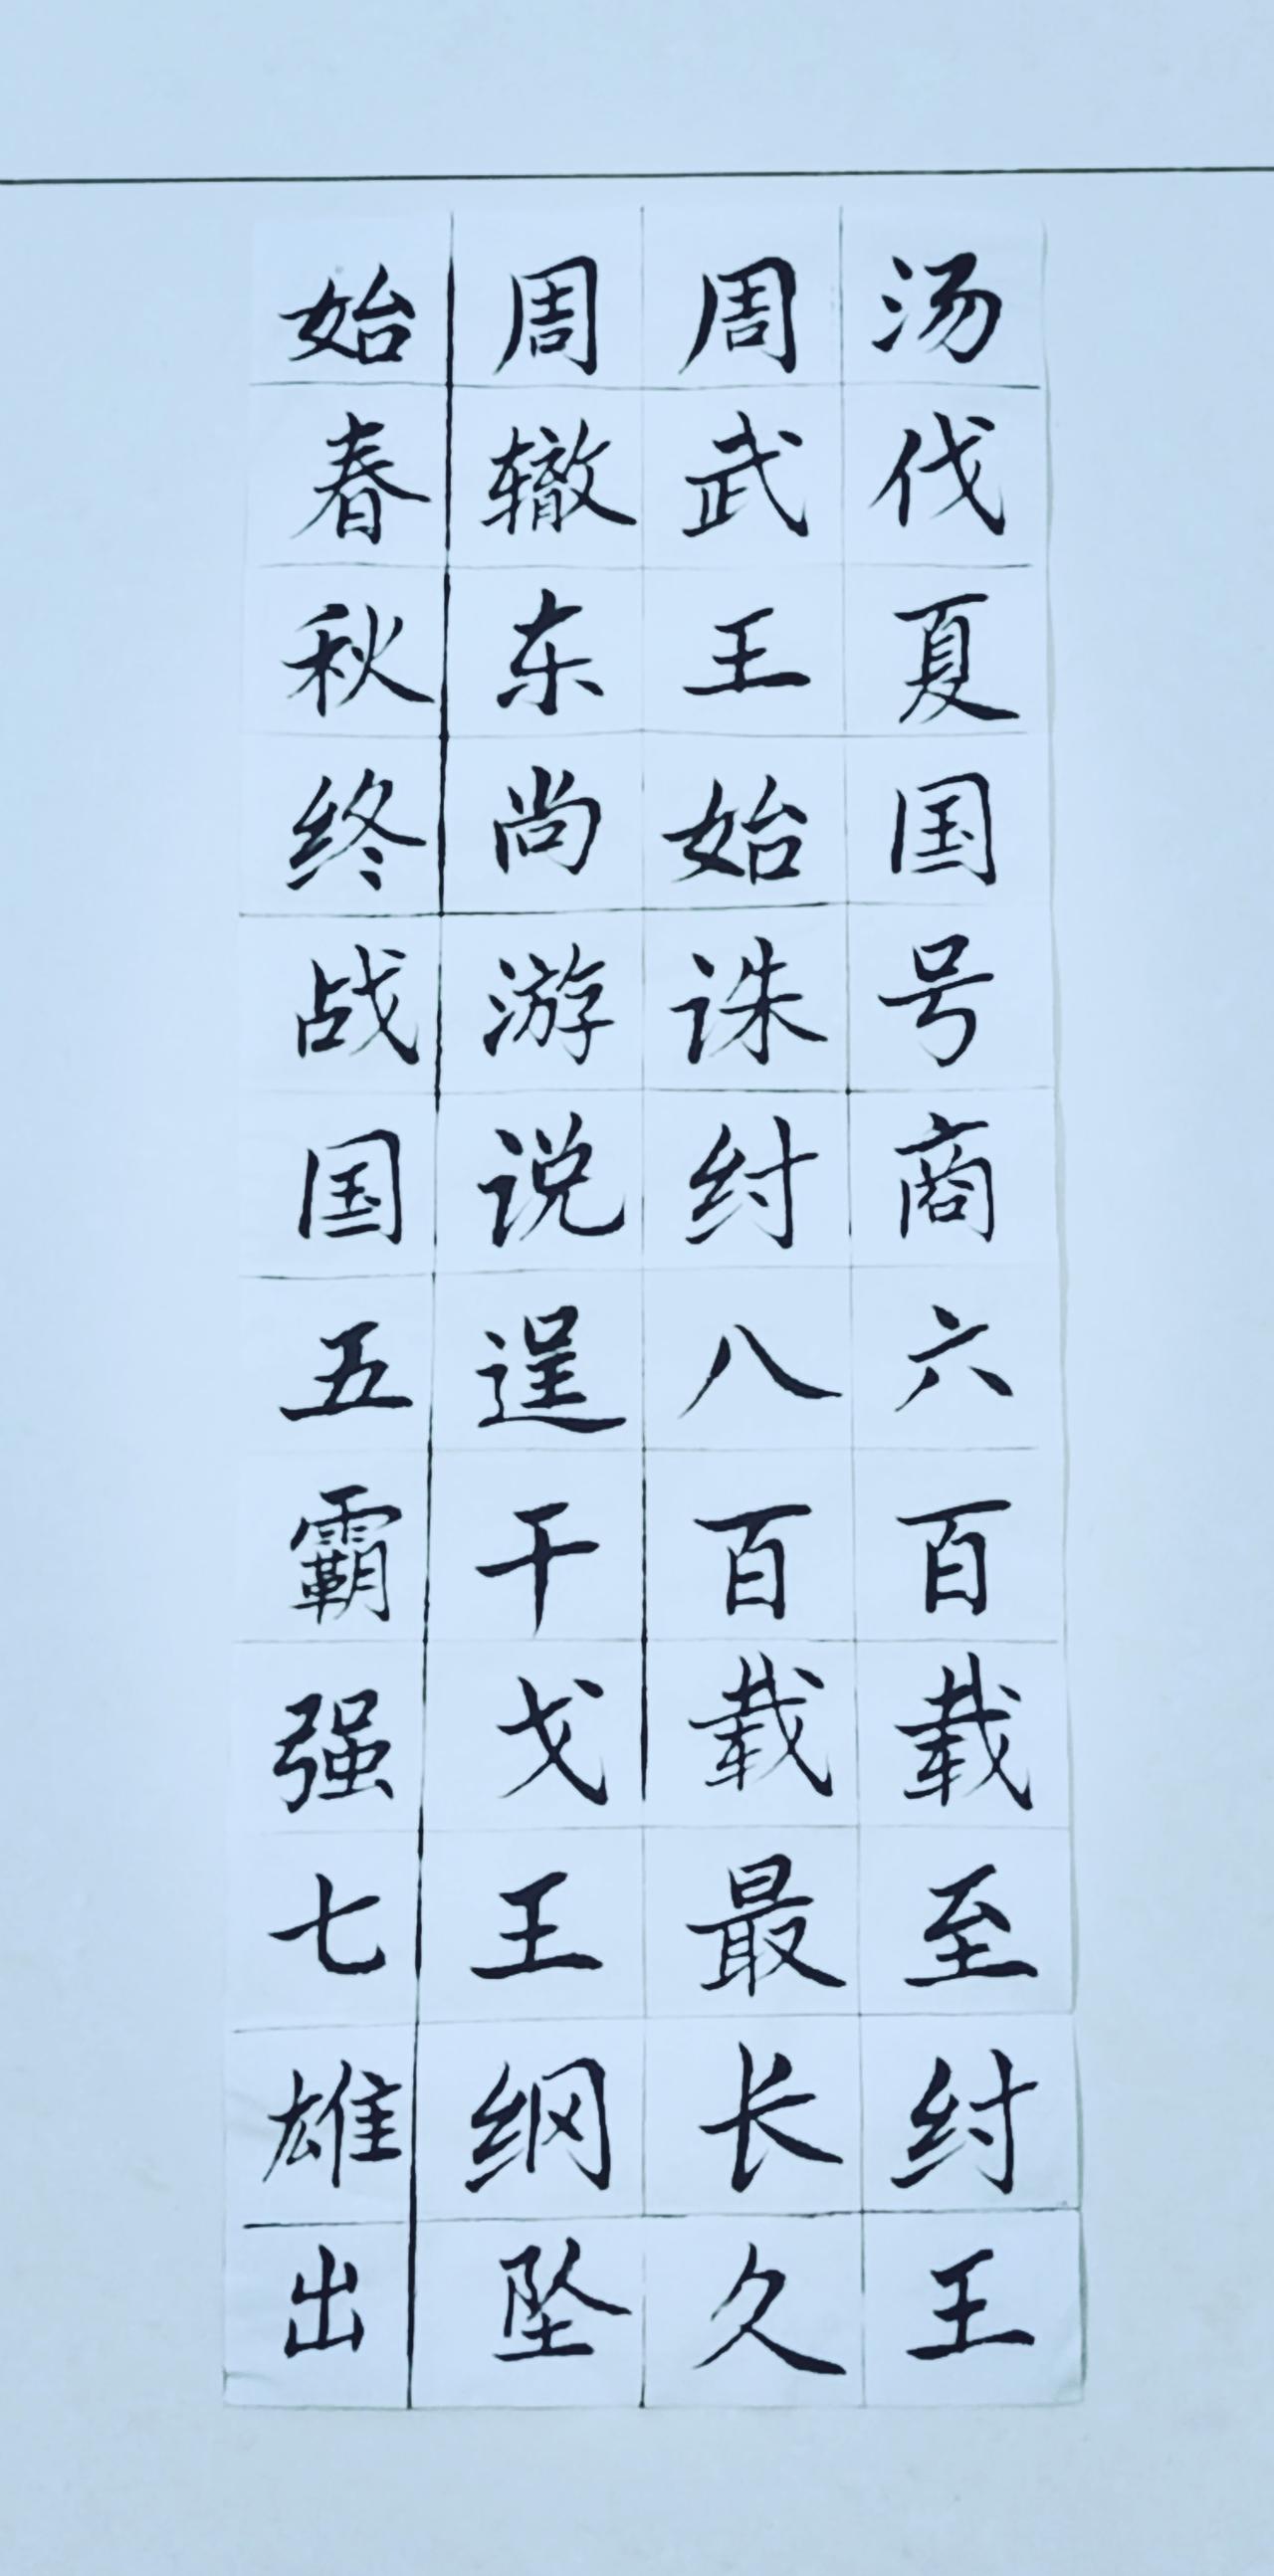 汤伐夏国号商六百载至纣王
周武王始诛纣八百载最长久
周辙东尚游说逞干戈王纲坠
始春秋终战国五霸强七雄出